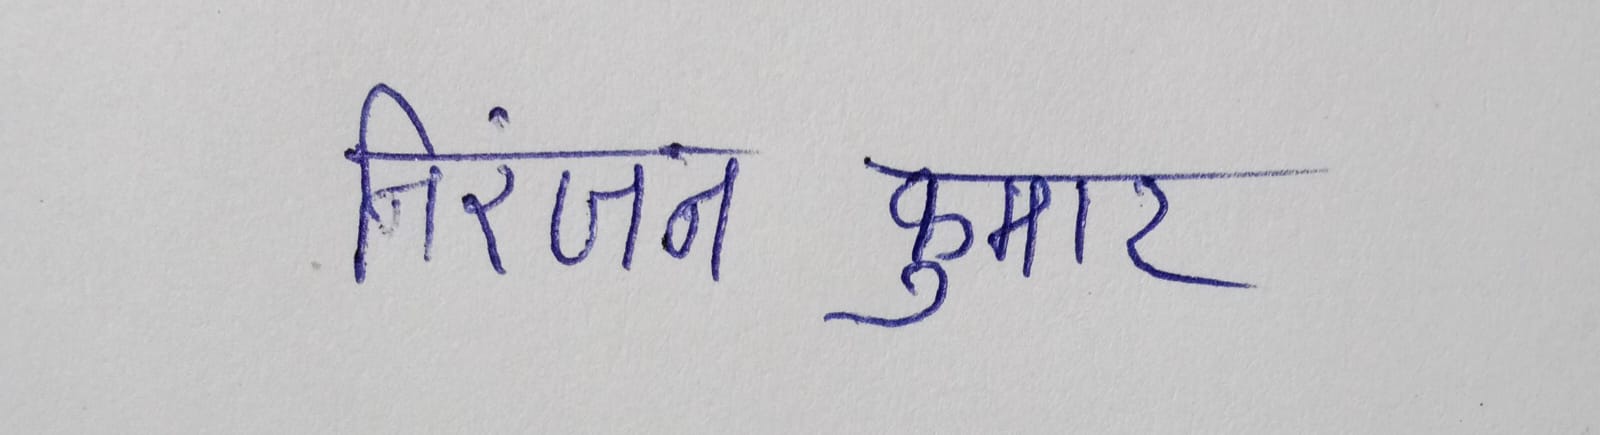 निरंजन कुमार